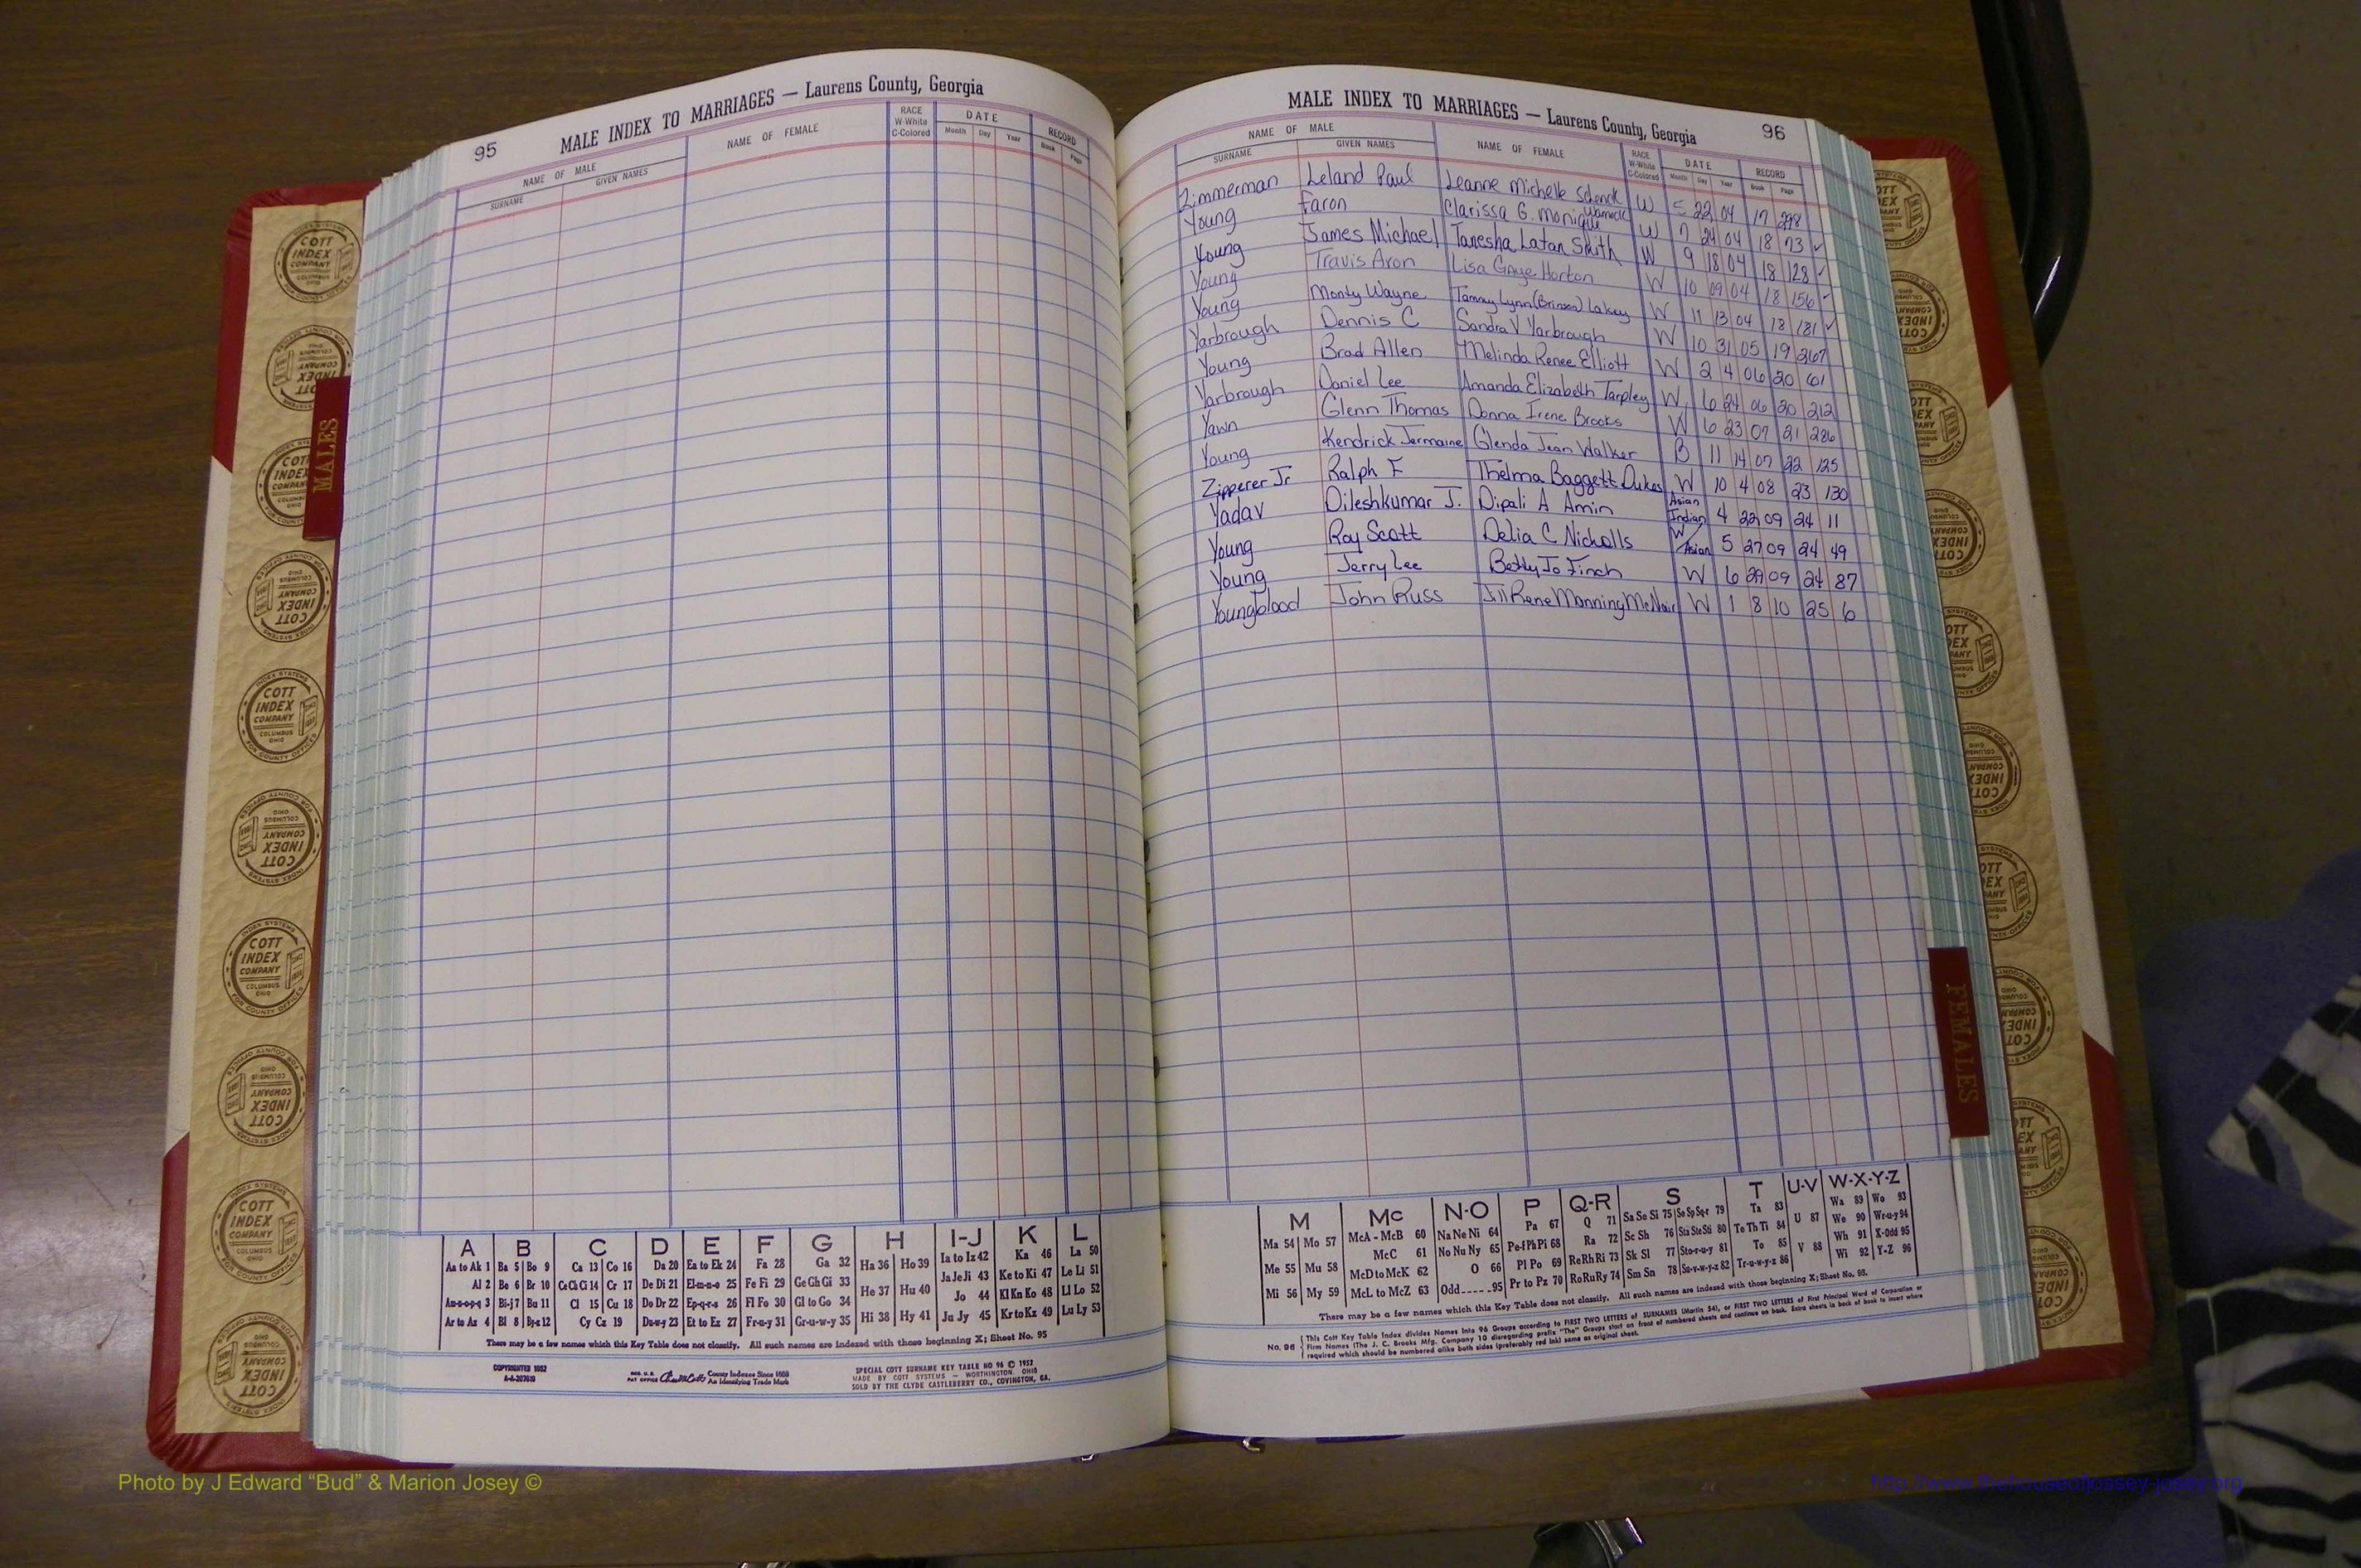 95
MALE INDEX TO MARRIAGES — Laurens County, Georgia
NAME OF MALE
SURNAME
GIVEN NAMES
NAME OF FEMALE
RACE
W-White
C-Colored
DATE
Month Day Year
RECORD
Book Page
MALE INDEX TO MARRIAGES — Laurens County, Georgia
96
NAME OF MALE
SURNAME
GIVEN NAMES
NAME OF FEMALE
RACE
W-White
C-Colored
DATE
Month Day Year
RECORD
Book Page
Zimmerman Leland Paul Leanne Michelle Schenck W 5 22 04 17 298
Young Faron Clarissa G. Monique Warnock W 7 24 04 18 73 ✓
Young James Michael Tanesha Latan Smith W 9 18 04 18 128 ✓
Young Travis Aron Lisa Gaye Horton W 10 09 04 18 156 ✓
Young Monty Wayne Tammy Lynn (Brinson) Lakey W 11 13 04 18 181 ✓
Yarbrough Dennis C Sandra V Yarbrough W 10 31 05 19 267
Young Brad Allen Melinda Renee Elliott W 2 4 06 20 61
Yarbrough Daniel Lee Amanda Elizabeth Tarpley W 6 24 06 20 212
Yawn Glenn Thomas Donna Irene Brooks W 6 23 07 21 286
Young Kendrick Jermaine Glenda Jean Walker B 11 14 07 22 125
Zipperer Jr Ralph F Thelma Baggett Dukes W 10 4 08 23 130
Yadav Dileshkumar J. Dipali A Amin Asian Indian 4 22 09 24 11
Young Roy Scott Delia C Nicholls W/Asian 5 27 09 24 49
Young Jerry Lee Betty Jo Finch W 6 29 09 24 87
Youngblood John Russ Jill Rene Manning McNair W 1 8 10 25 6
MALES
FEMALES
COTT
INDEX
COMPANY
COLUMBUS
OHIO
A B C D E F G H I-J K L
Aa to Ak 1 Ba 5 Bo 9 Ca 13 Co 16 Da 20 Ea to Ek 24 Fa 28 Ga 32 Ha 36 Ho 39 Ia to Iz 42 Ka 46 La 50
Al 2 Be 6 Br 10 Ce Ch Ci 14 Cr 17 De Di 21 El-m-n-o 25 Fe Fi 29 Ge Gh Gi 33 He 37 Hu 40 Ja Je Ji 43 Ke to Ki 47 Le Li 51
Am-n-o-p-q 3 Bi-j 7 Bu 11 Cl 15 Cu 18 Do Dr 22 Ep-q-r-s 26 Fl Fo 30 Gl to Go 34 Hi 38 Hy 41 Jo 44 Kl Kn Ko 48 Ll Lo 52
Ar to Az 4 Bl 8 By-z 12 Cy Cz 19 Du-w-y 23 Et to Ez 27 Fr-u-y 31 Gr-u-w-y 35 Ju Jy 45 Kr to Kz 49 Lu Ly 53
There may be a few names which this Key Table does not classify. All such names are indexed with those beginning X; Sheet No. 95
COPYRIGHTED 1952
REG. U.S. PAT OFFICE County Indexes Since 1888
An Identifying Trade Mark
SPECIAL COTT SURNAME KEY TABLE NO 96 © 1952
MADE BY COTT SYSTEMS — WORTHINGTON, OHIO
SOLD BY THE CLYDE CASTLEBERRY CO., COVINGTON, GA.
M Mc N-O P Q-R S T U-V W-X-Y-Z
Ma 54 Mo 57 McA - McB 60 Na Ne Ni 64 Pa 67 Q 71 Sa Se Si 75 So Sp Sq-r 79 Ta 83 U 87 Wa 89 Wo 93
Me 55 Mu 58 McC 61 No Nu Ny 65 Pe-f Ph Pi 68 Ra 72 Sc Sh 76 Sta Ste Sti 80 Te Th Ti 84 V 88 We 90 Wr-u-y 94
Mi 56 My 59 McD to McK 62 O 66 Pl Po 69 Re Rh Ri 73 Sk Sl 77 Sto-r-u-y 81 To 85 Wh 91 X-Odd 95
McL to McZ 63 Odd 95 Pr to Pz 70 Ro Ru Ry 74 Sm Sn 78 Su-v-w-y-z 82 Tr-u-w-y-z 86 Wi 92 Y-Z 96
There may be a few names which this Key Table does not classify. All such names are indexed with those beginning X; Sheet No. 95.
No. 96 This Cott Key Table Index divides Names into 96 Groups according to FIRST TWO LETTERS of SURNAMES (Martin 54), or FIRST TWO LETTERS of First Principal Word of Corporation or
Firm Names (The J. C. Brooks Mfg. Company 10 disregarding prefix "The" Groups start on front of numbered sheets and continue on back. Extra sheets in back of book to insert where
required which should be numbered alike both sides (preferably red ink) same as original sheet.
Photo by J Edward “Bud” & Marion Josey ©
http://www.thehouseofjossey-josey.org